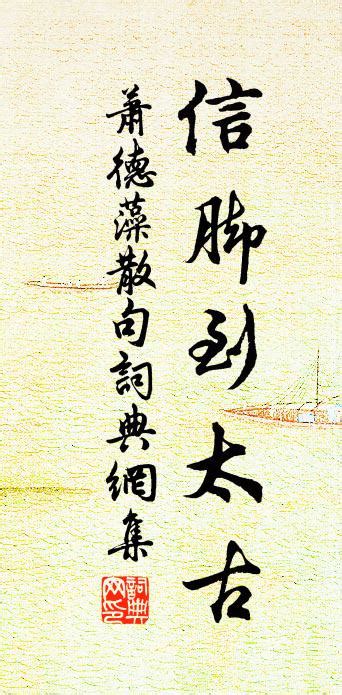 信脚到太古
蕭德藻散句詞典網集
詞典网印